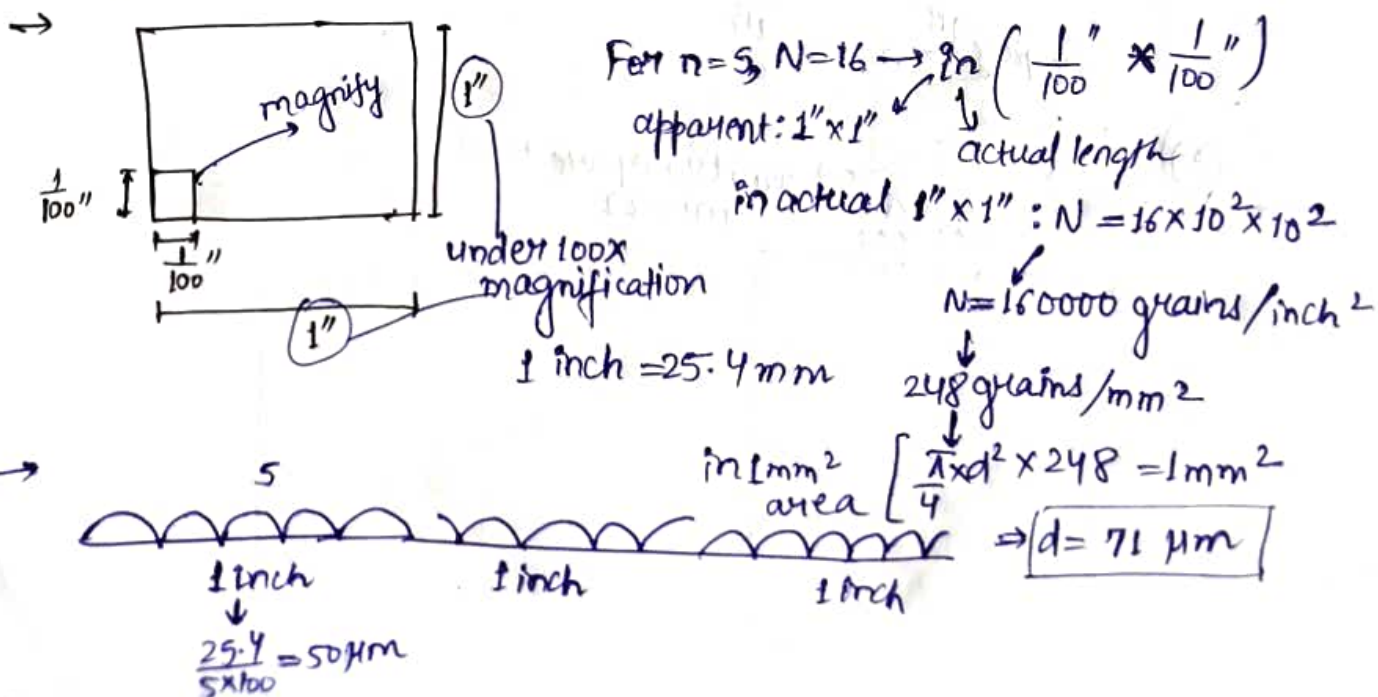 →
magnify
1"
1/100"
1/100"
1"
under 100x
magnification
1 inch = 25.4 mm
For n=5, N=16 → in ( 1/100" * 1/100" )
apparent: 1"x1"
actual length
in actual 1"x1" : N = 16×10²×10²
N=160000 grains/inch²
↓
248 grains/mm²
in 1mm² area [ π/4 xd² × 248 = 1mm²
⇒ d= 71 μm
→
5
1 inch 1 inch 1 inch
↓
25.4/5×100 = 50μm